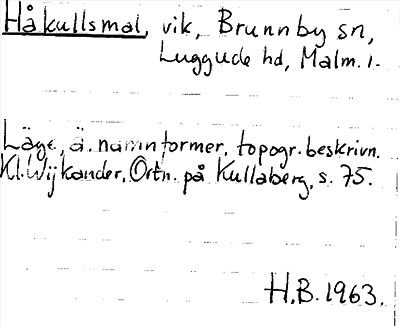 Håkullsmal, vik, Brunnby sn,
Luggude hd, Malm. l.
Läge, ä. namnformer, topogr. beskrivn.
Kl. Wijkander, Ortn. på Kullaberg, s. 75.
H.B. 1963.